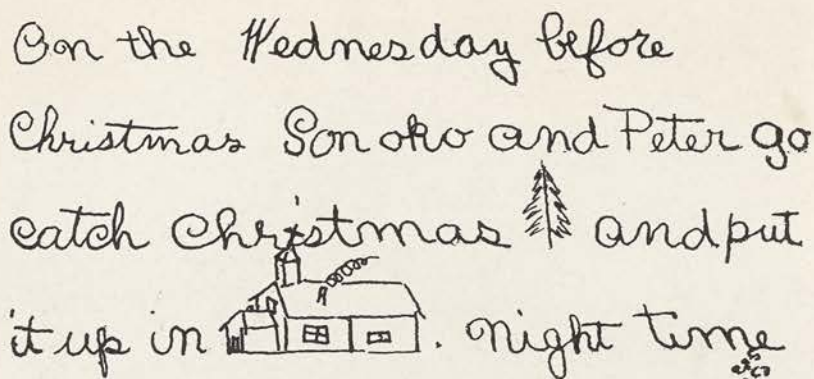 On the Wednesday before
Christmas Sonoko and Peter go
catch Christmas and put
it up in . night time